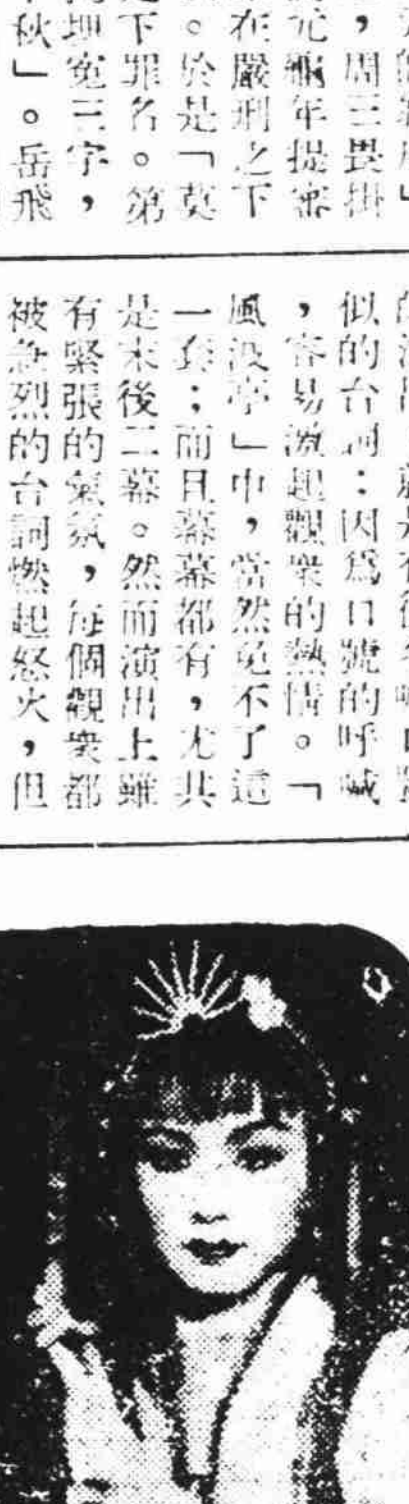 ,周三畏掛
年提審
在嚴刑之下
。於是「莫
下罪名。第
寃三字,
秋」。岳飛
似的台詞:因爲口號的呼喊
,容易激起觀衆的熱情。「
風波亭」中,當然免不了這
一套;而且幕幕都有,尤其
是末後二幕。然而演出上雖
有緊張的氣氛,每個觀衆都
被急烈的台詞燃起怒火,但